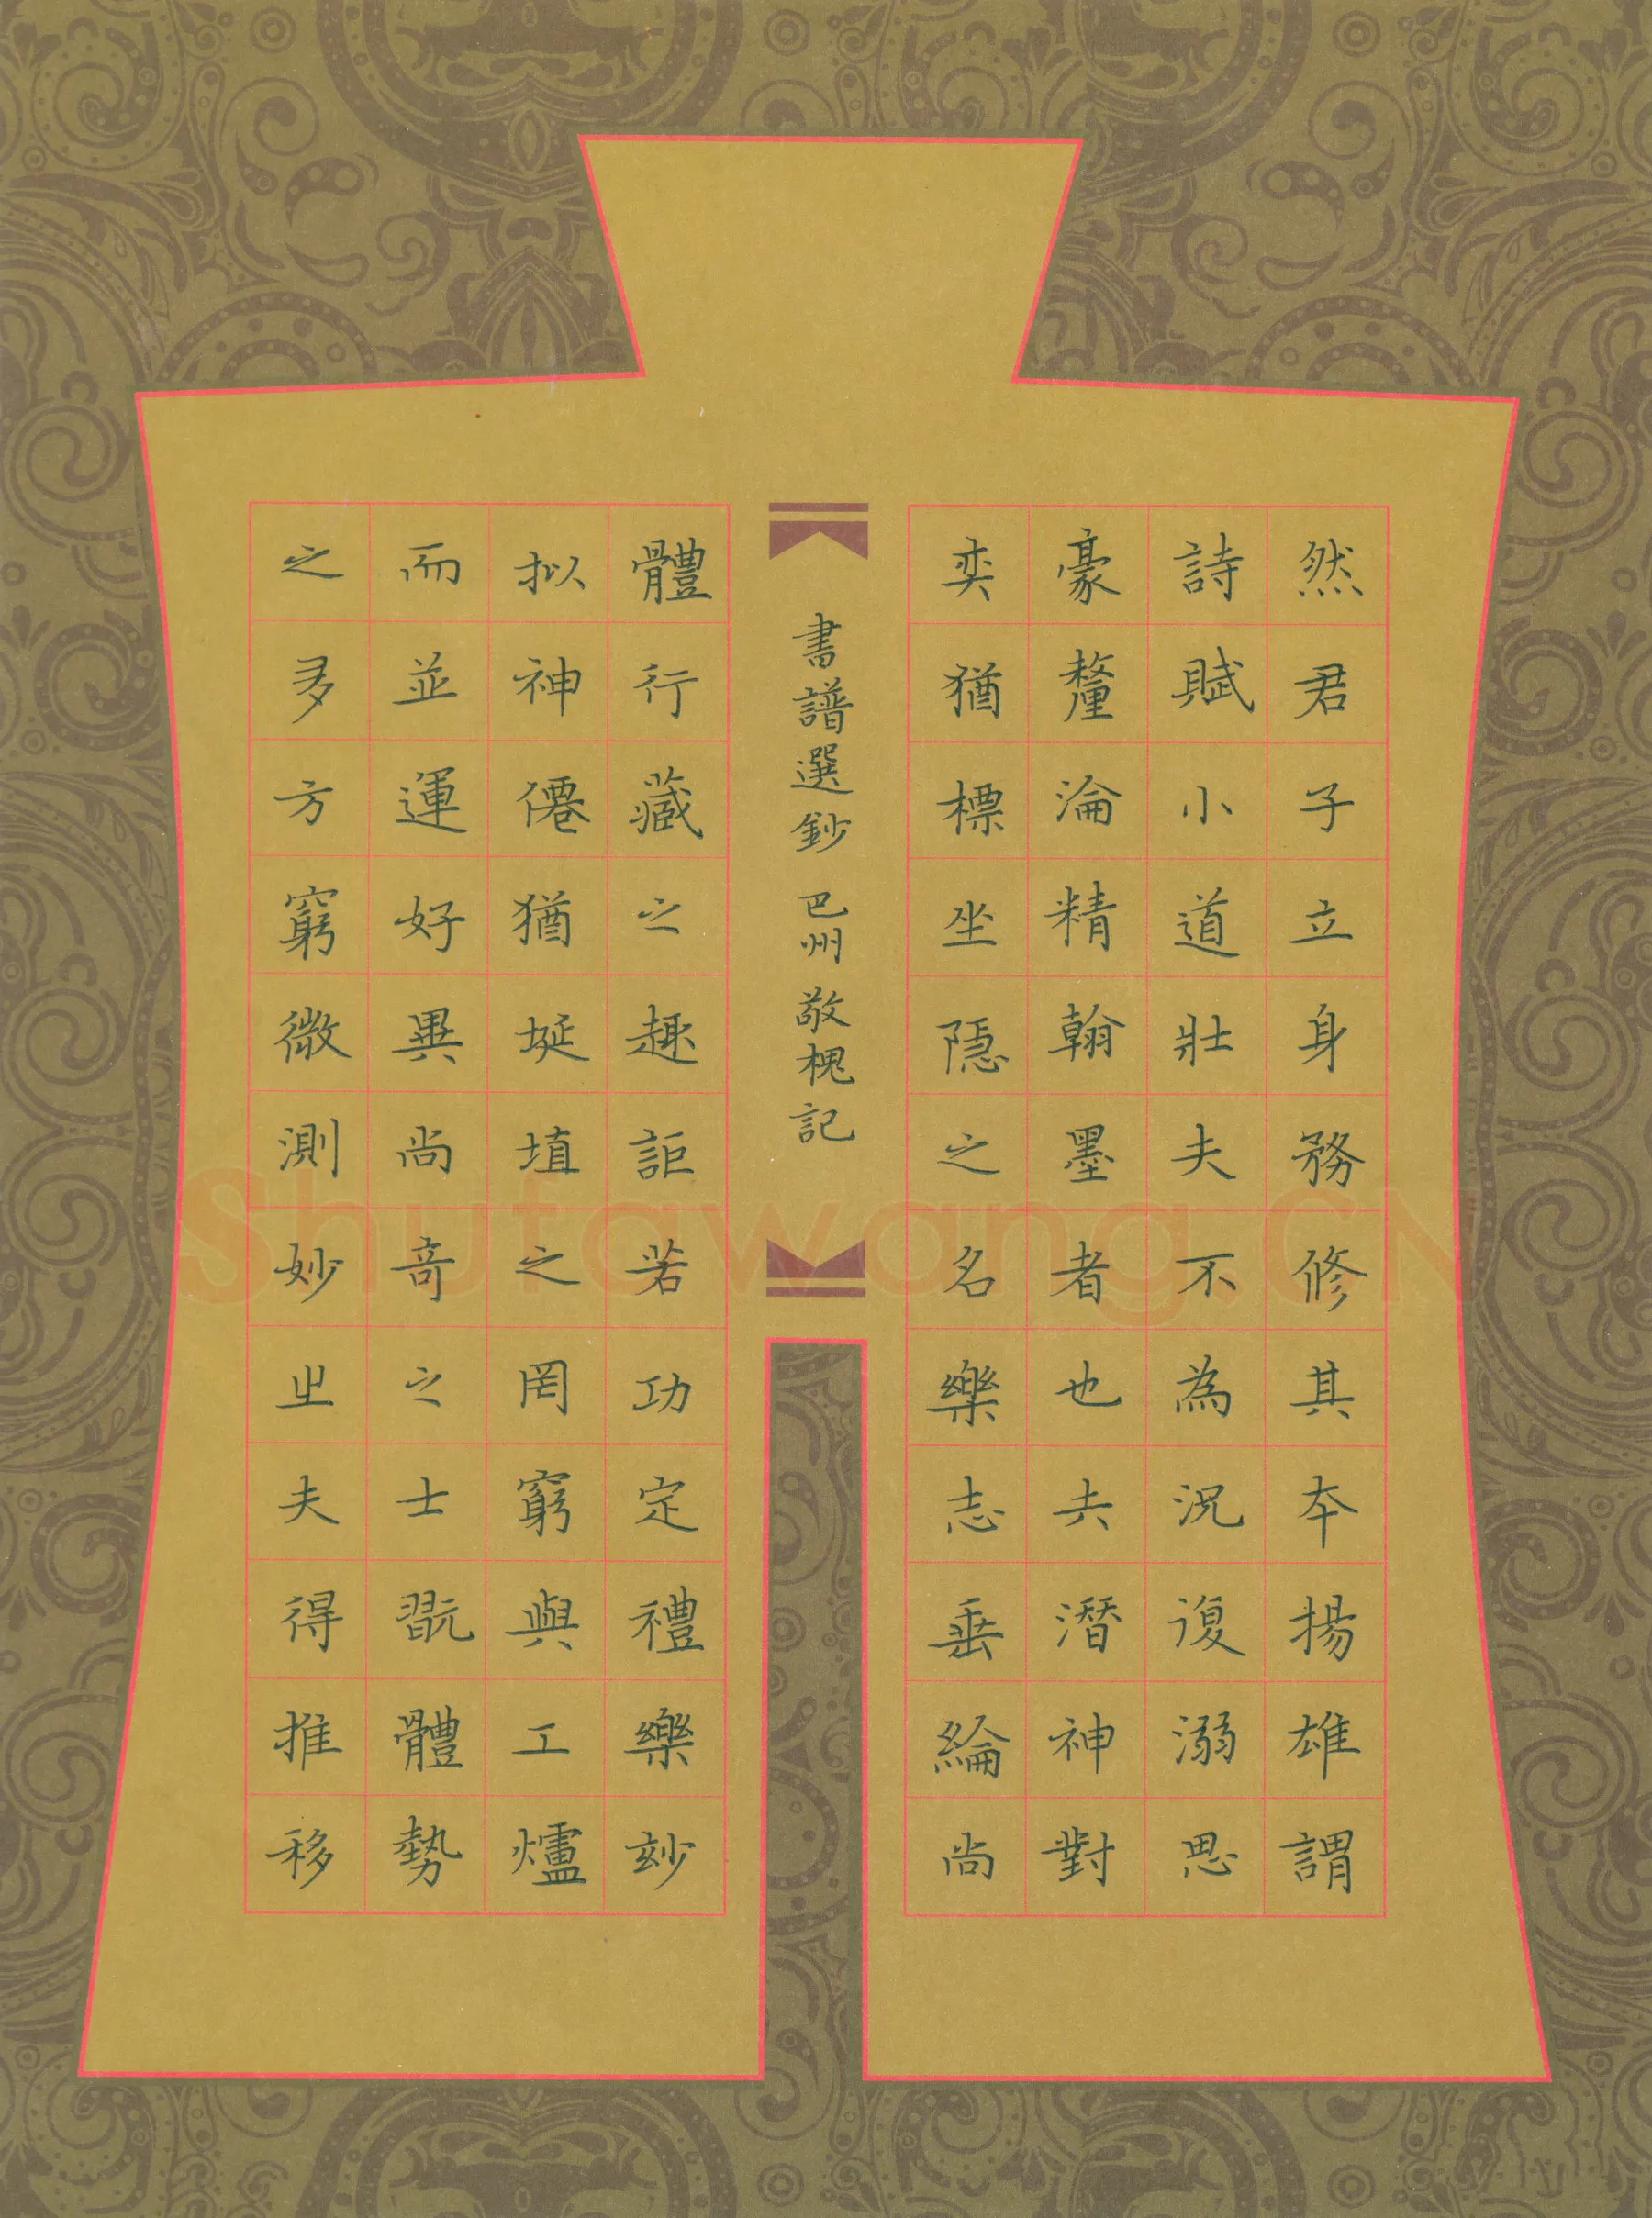 然君子立身務修其本揚雄謂
詩賦小道壯夫不為況復溺思
豪釐淪精翰墨者也夫潛神對
奕猶標坐隱之名樂志垂綸尚
體行藏之趣詎若功定禮樂妙
拟神僊猶埏埴之罔窮與工爐
而並運好異尚奇之士翫體勢
之多方窮微測妙之夫得推移
書譜選鈔 巴州敬槐記
Shufawang.CN